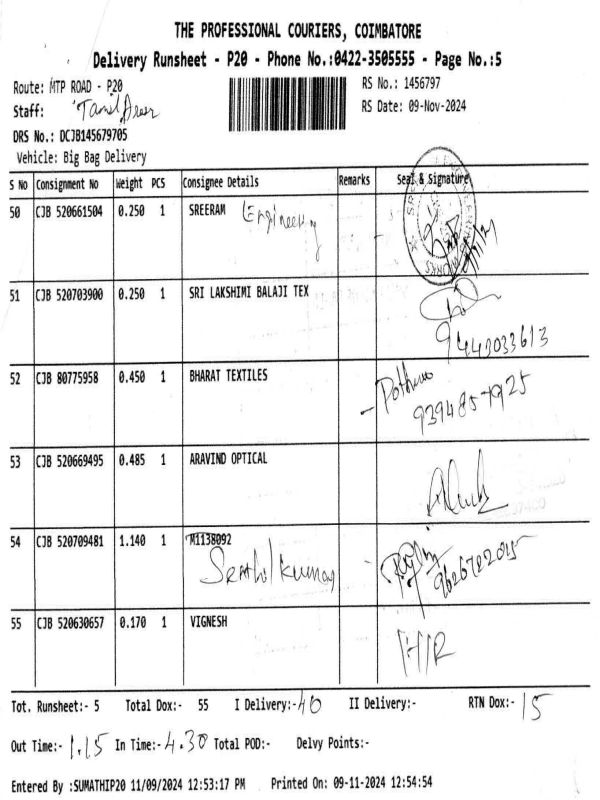 THE PROFESSIONAL COURIERS, COIMBATORE
Delivery Runsheet - P20 - Phone No.:0422-3505555 - Page No.:5
Route: MTP ROAD - P20 RS No.: 1456797
Staff: Tamil RS Date: 09-Nov-2024
DRS No.: DCJB145679705
Vehicle: Big Bag Delivery
S No Consignment No Weight PCS Consignee Details Remarks Seal & Signature
50 CJB 520661504 0.250 1 SREERAM Engineering
51 CJB 520703900 0.250 1 SRI LAKSHIMI BALAJI TEX
9442033613
52 CJB 80775958 0.450 1 BHARAT TEXTILES
9394857925
53 CJB 520669495 0.485 1 ARAVIND OPTICAL
54 CJB 520709481 1.140 1 M1138092
Senthil Kumar 9626722025
55 CJB 520630657 0.170 1 VIGNESH
Tot. Runsheet:- 5 Total Dox:- 55 I Delivery:- 40 II Delivery:- RTN Dox:- 15
Out Time:- 1.15 In Time:- 4.30 Total POD:- Delvy Points:-
Entered By :SUMATHIP20 11/09/2024 12:53:17 PM Printed On: 09-11-2024 12:54:54